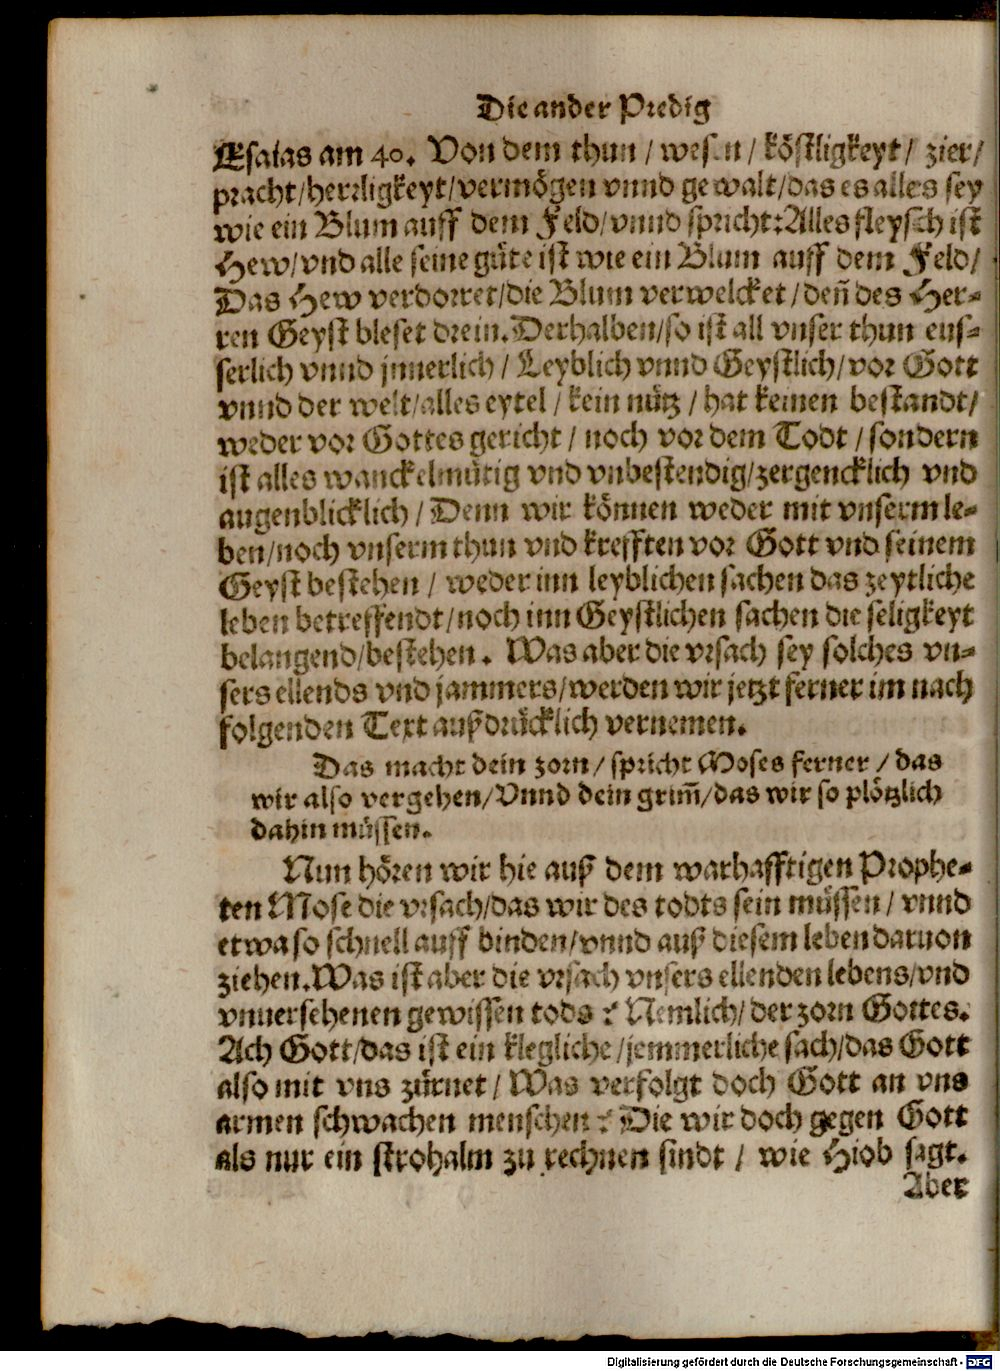 Die ander Predig
Esaias am 40. Von dem thun / wesen / köstligkeyt / zier /
pracht / herrligkeyt / vermögen vnnd gewalt / das es alles sey
wie ein Blum auff dem Feld / vnnd spricht: Alles fleysch ist
Hew / vnd alle seine güte ist wie ein Blum auff dem Feld /
Das Hew verdorret / die Blum verwelcket / deñ des Her-
ren Geyst bleset drein. Derhalben / so ist all vnser thun eus-
serlich vnnd jnnerlich / Leyblich vnnd Geystlich / vor Gott
vnnd der welt / alles eytel / kein nütz / hat keinen bestandt /
weder vor Gottes gericht / noch vor dem Todt / sondern
ist alles wanckelmütig vnd vnbestendig / zergencklich vnd
augenblicklich / Denn wir können weder mit vnserm le-
ben / noch vnserm thun vnd krefften vor Gott vnd seinem
Geyst bestehen / weder inn leyblichen sachen das zeytliche
leben betreffendt / noch inn Geystlichen sachen die seligkeyt
belangend / bestehen. Was aber die vrsach sey solches vn-
sers ellends vnd jammers / werden wir jetzt ferner im nach
folgenden Text außdrücklich vernemen.
Das macht dein zorn / spricht Moses ferner / das
wir also vergehen / Vnnd dein grim̃ / das wir so plötzlich
dahin müssen.
Nun hören wir hie auß dem warhafftigen Prophe-
ten Mose die vrsach / das wir des todts sein müssen / vnnd
etwa so schnell auff binden / vnnd auß diesem leben daruon
ziehen. Was ist aber die vrsach vnsers ellenden lebens / vnd
vnuersehenen gewissen tods? Nemlich / der zorn Gottes.
Ach Gott / das ist ein klegliche / jemmerliche sach / das Gott
also mit vns zürnet / Was verfolgt doch Gott an vns
armen schwachen menschen? Die wir doch gegen Gott
als nur ein strohalm zu rechnen sindt / wie Hiob sagt.
Aber
Digitalisierung gefördert durch die Deutsche Forschungsgemeinschaft - DFG